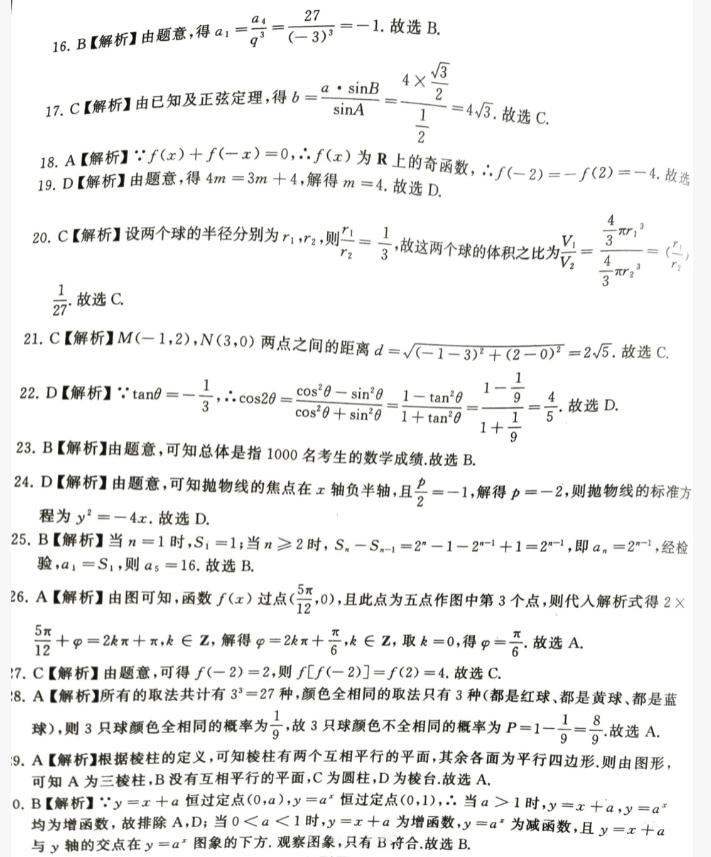 16. B【解析】由题意,得 a₁ = a₄/q³ = 27/(−3)³ = −1. 故选 B.
17. C【解析】由已知及正弦定理,得 b = a·sinB/sinA = (4×√3/2)/(1/2) = 4√3. 故选 C.
18. A【解析】∵f(x)+f(−x)=0,∴f(x) 为 R 上的奇函数, ∴f(−2)=−f(2)=−4. 故选
19. D【解析】由题意,得 4m = 3m + 4,解得 m = 4. 故选 D.
20. C【解析】设两个球的半径分别为 r₁,r₂,则 r₁/r₂ = 1/3,故这两个球的体积之比为 V₁/V₂ = (4/3 πr₁³)/(4/3 πr₂³) = (r₁/r₂)
1/27. 故选 C.
21. C【解析】M(−1,2),N(3,0) 两点之间的距离 d = √((−1−3)²+(2−0)²) = 2√5. 故选 C.
22. D【解析】∵tanθ = −1/3,∴cos2θ = (cos²θ−sin²θ)/(cos²θ+sin²θ) = (1−tan²θ)/(1+tan²θ) = (1−1/9)/(1+1/9) = 4/5. 故选 D.
23. B【解析】由题意,可知总体是指 1000 名考生的数学成绩.故选 B.
24. D【解析】由题意,可知抛物线的焦点在 x 轴负半轴,且 p/2 = −1,解得 p = −2,则抛物线的标准方
程为 y² = −4x. 故选 D.
25. B【解析】当 n = 1 时,S₁ = 1;当 n ⩾ 2 时, Sₙ − Sₙ₋₁ = 2ⁿ − 1 − 2ⁿ⁻¹ + 1 = 2ⁿ⁻¹,即 aₙ = 2ⁿ⁻¹,经检
验,a₁ = S₁,则 a₅ = 16. 故选 B.
26. A【解析】由图可知,函数 f(x) 过点(5π/12,0),且此点为五点作图中第 3 个点,则代入解析式得 2×
5π/12 + φ = 2kπ + π,k ∈ Z, 解得 φ = 2kπ + π/6,k ∈ Z, 取 k = 0,得 φ = π/6. 故选 A.
7. C【解析】由题意,可得 f(−2) = 2,则 f[f(−2)] = f(2) = 4. 故选 C.
8. A【解析】所有的取法共计有 3³ = 27 种,颜色全相同的取法只有 3 种(都是红球、都是黄球、都是蓝
球),则 3 只球颜色全相同的概率为 1/9,故 3 只球颜色不全相同的概率为 P=1−1/9=8/9.故选 A.
9. A【解析】根据棱柱的定义,可知棱柱有两个互相平行的平面,其余各面为平行四边形.则由图形,
可知 A 为三棱柱,B 没有互相平行的平面,C 为圆柱,D 为棱台.故选 A.
0. B【解析】∵y = x + a 恒过定点(0,a),y = aˣ 恒过定点(0,1),∴ 当 a > 1 时,y = x + a,y = aˣ
均为增函数, 故排除 A,D; 当 0 < a < 1 时,y = x + a 为增函数,y = aˣ 为减函数,且 y = x + a
与 y 轴的交点在 y = aˣ 图象的下方. 观察图象,只有 B 符合.故选 B.